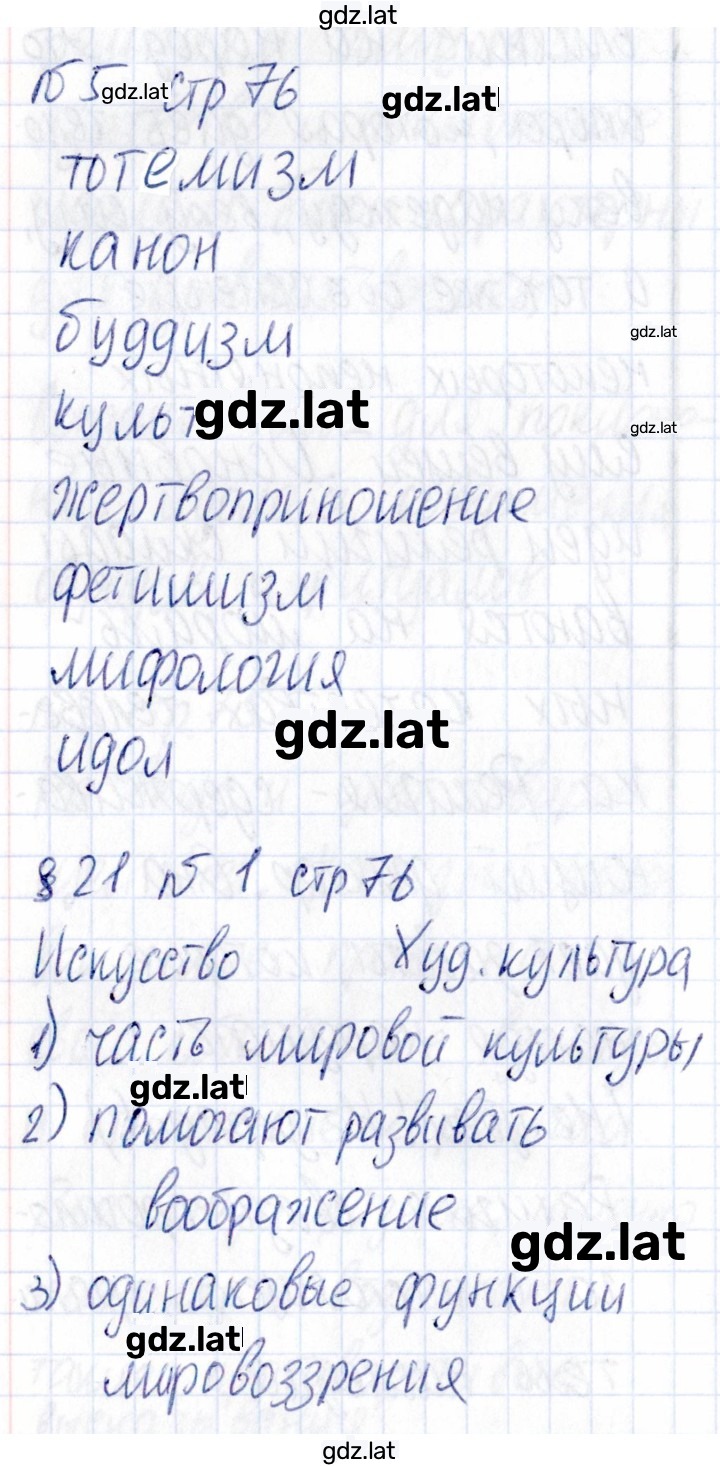 gdz.lat
№ 5 gdz.lat стр 76 gdz.lat
тотемизм
канон
буддизм gdz.lat
культ gdz.lat gdz.lat
жертвоприношение
фетишизм
мифология
gdz.lat
идол
§ 21 № 1 стр 76
Искусство Худ. культура
1) часть мировой культуры
gdz.lat
2) помогают развивать
воображение
gdz.lat
3) одинаковые функции
gdz.lat
мировоззрения
gdz.lat